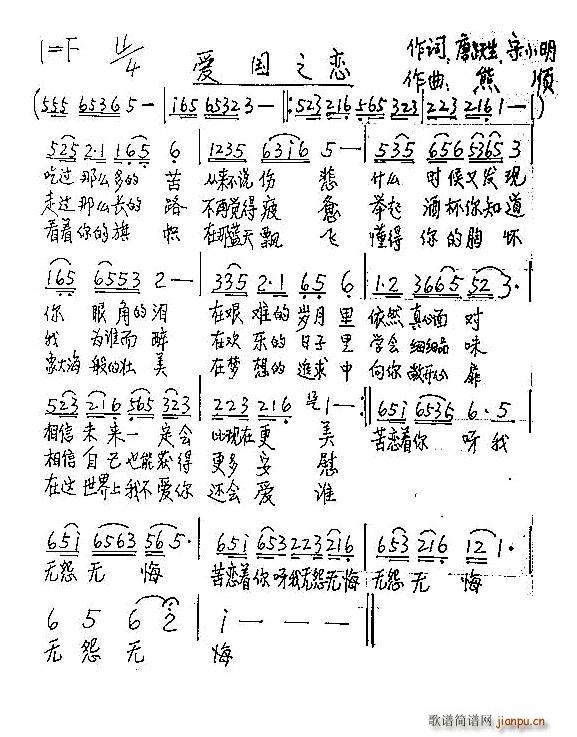 1=F 4/4
爱国之恋
作词 唐跃生 宋小明
作曲: 熊 顺
(555 65365 - | i65 65323 - |: 523 216 565 323 | 223 216 1 - |)
525 2·1 165 6 | 1235 63i6 5 - | 535 656 5365 3
吃过那么多的苦 从来不说伤悲 什么时候又发现
走过那么长的路 不再觉得疲惫 举起酒杯你知道
看着你的旗帜 在那蓝天飘飞 懂得你的胸怀
165 6553 2 - | 335 2·1 65 6 | 1·2 36655 52 3·
你眼角的泪 在艰难的岁月里 依然真心面对
我为谁而醉 在欢乐的日子里 学会细细品味
象大海般的壮美 在梦想的追求中 向你敞开心扉
523 216 565 323 | 223 216 1 - :| 65i 6535 6·5
相信未来一定会 比现在更美 苦恋着你呀我
相信自己也能获得 更多安慰
在这世界上我不爱你 还会爱谁
65i 6563 56 5· | 65i 653 223 216 | 653 216 12 1·
无怨无悔 苦恋着你呀我无怨无悔 无怨无悔
6 5 6 2 | i - - - ||
无怨无 悔
歌谱简谱网
jianpu.cn